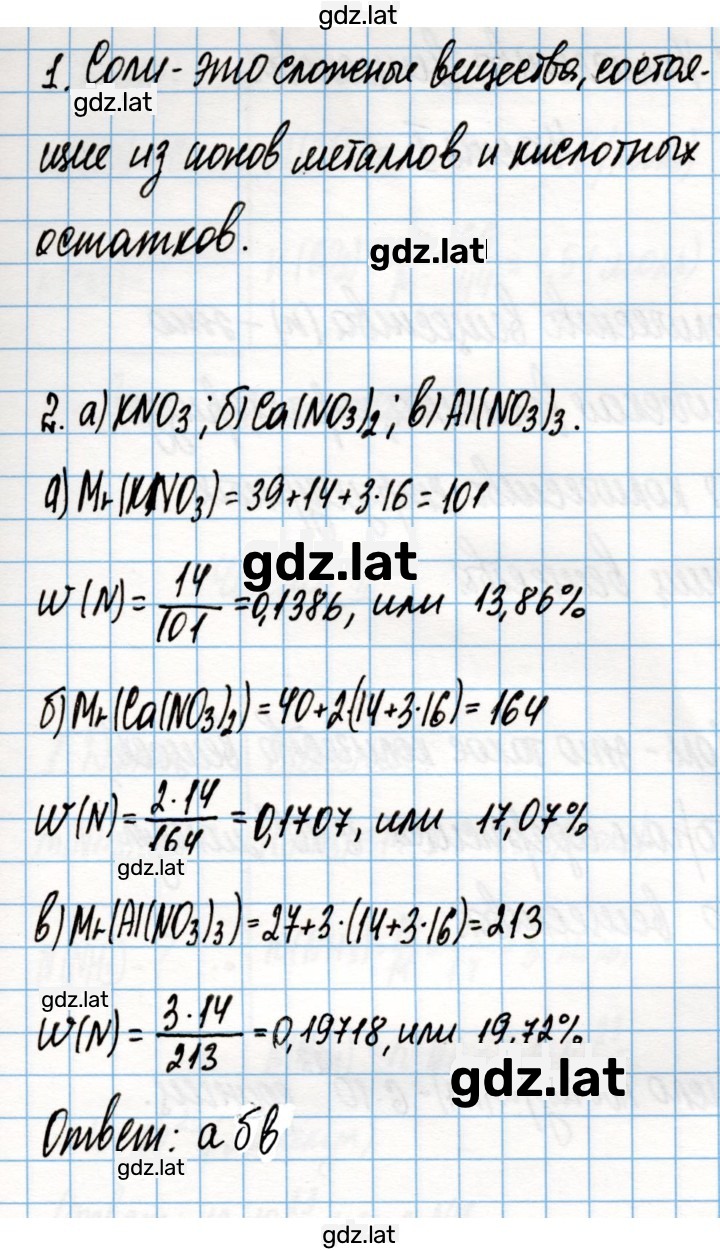 gdz.lat
1. Соли - это сложные вещества, состоя-
gdz.lat
щие из ионов металлов и кислотных
остатков.
gdz.lat
2. а) KNO₃; б) Ca(NO₃)₂; в) Al(NO₃)₃.
а) Mr(KNO₃) = 39+14+3·16 = 101
gdz.lat
W(N) = 14/101 = 0,1386, или 13,86%
б) Mr(Ca(NO₃)₂) = 40+2·(14+3·16) = 164
W(N) = 2·14/164 = 0,1707, или 17,07%
gdz.lat
в) Mr(Al(NO₃)₃) = 27+3·(14+3·16) = 213
gdz.lat
W(N) = 3·14/213 = 0,19718, или 19,72%
gdz.lat
Ответ: а б в
gdz.lat
gdz.lat